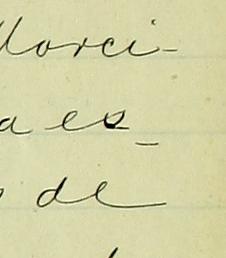 Morci-
a es-
de